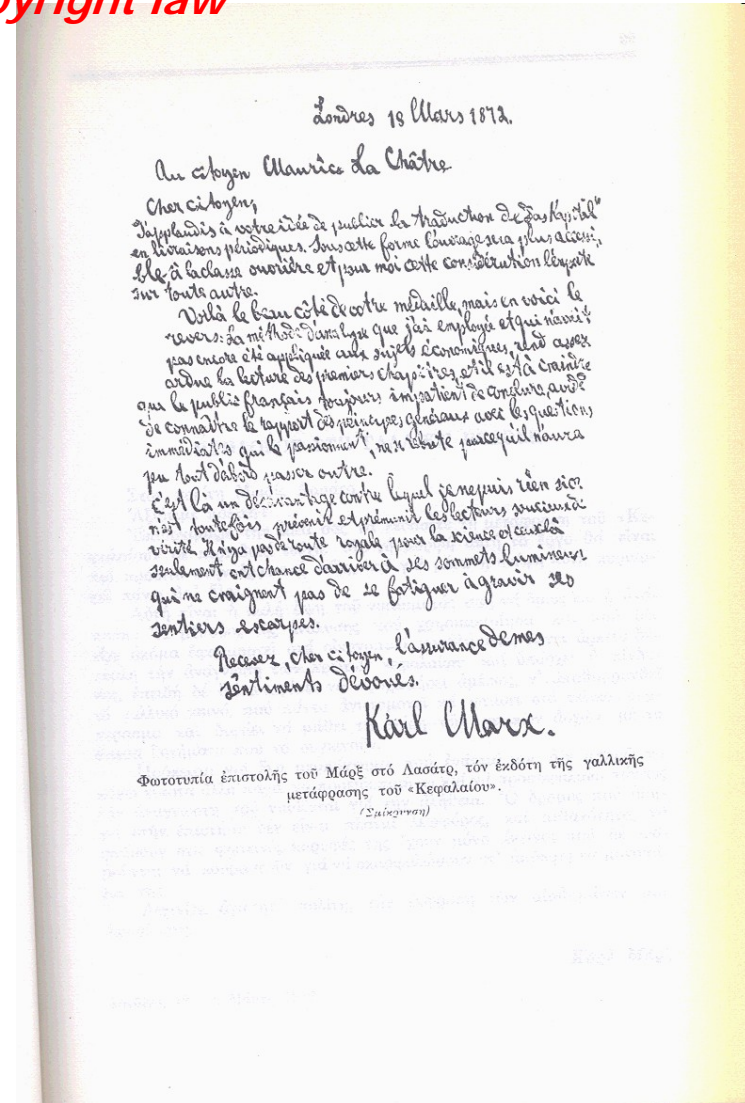 pyright law
Londres 18 Mars 1872.
Au citoyen Maurice La Châtre
Cher citoyen,
J'applaudis à votre idée de publier la traduction de „Das Kapital"
en livraisons périodiques. Sous cette forme l'ouvrage sera plus accessi,
ble à la classe ouvrière et pour moi cette considération l'emporte
sur toute autre.
Voilà le beau côté de votre médaille, mais en voici le
revers: La méthode d'analyse que j'ai employée et qui n'avait
pas encore été appliquée aux sujets économiques, rend assez
ardue la lecture des premiers chapitres, et il est à craindre
que le public français toujours impatient de conclure, avide
de connaître le rapport des principes généraux avec les questions
immédiates qui le passionnent, ne se rebute parcequ'il n'aura
pu tout d'abord passer outre.
C'est là un désavantage contre lequel je ne puis rien si ce
n'est toutefois prévenir et prémunir les lecteurs soucieux de
vérité. Il n'y a pas de route royale pour la science et ceux là
seulement ont chance d'arriver à ses sommets lumineux
qui ne craignent pas de se fatiguer à gravir ses
sentiers escarpés.
Recevez, cher citoyen, l'assurance de mes
sentiments dévoués.
Karl Marx.
Φωτοτυπία ἐπιστολῆς τοῦ Μάρξ στό Λασάτρ, τόν ἐκδότη τῆς γαλλικῆς
μετάφρασης τοῦ «Κεφαλαίου».
(Σμίκρυνση)